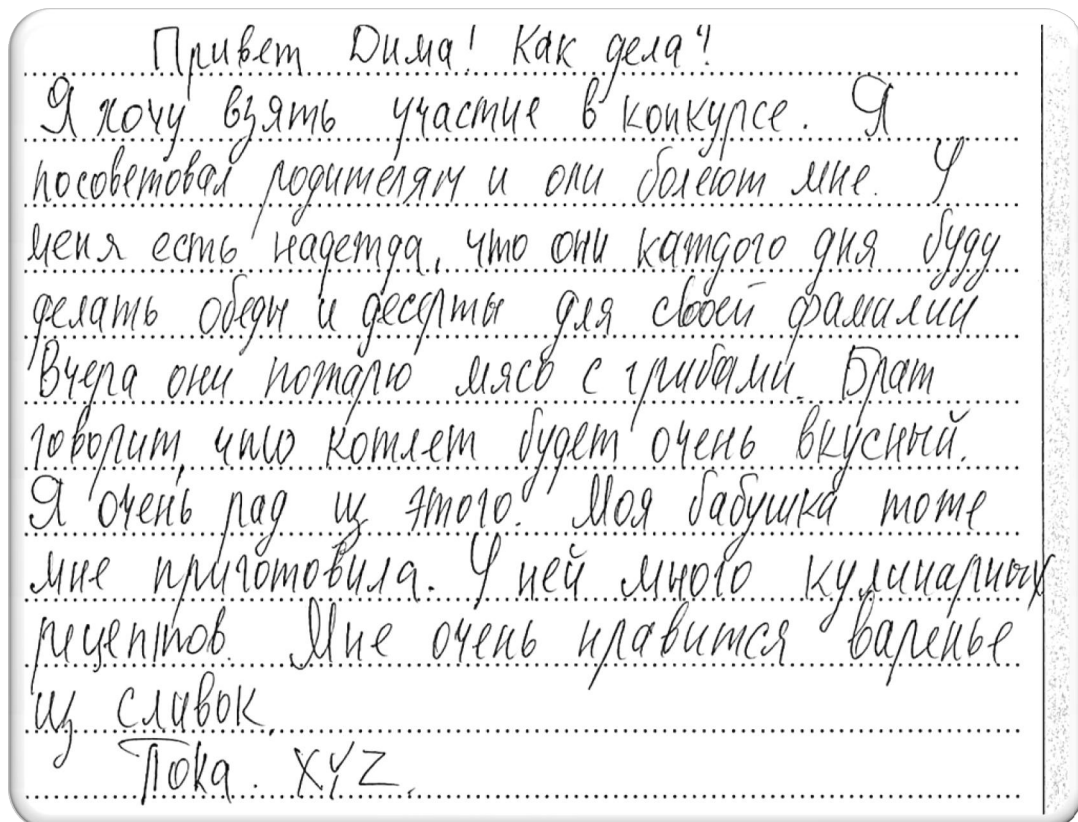 Привет Дима! Как дела?
Я хочу взять участие в конкурсе. Я
посоветовал родителям и они болеют мне. У
меня есть надежда, что они каждого дня буду
делать обеды и десерты для своей фамилии
Вчера они пожарю мясо с грибами. Брат
говорит, что котлет будет очень вкусный.
Я очень рад из этого. Моя бабушка тоже
мне приготовила. У ней много кулинарных
рецептов. Мне очень нравится варенье
из сливок.
Пока. XYZ.